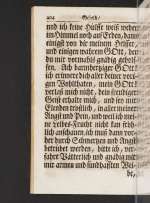 204 Gebeth/
und ich keine Hülffe weiß weder
im Himmel noch auf Erden, dann
einzigst von dir meinem HErrn
und einigen wahren GOtt, der
du mir vormahls gnädig geholf-
fen. Ach barmhertziger GOtt!
ich erinnere dich aller deiner vori-
gen Wohlthaten, mein GOtt
verlaß mich nicht, dein freudiger
Geist erhalte mich, und sey mir
Elenden tröstlich, in aller meiner
Angst und Pein, und weil ich mei-
ne Leibes-Frucht nicht kan fröh-
lich anschauen, ich muß dann vor-
her durch Schmertzen und Angst
betrübet werden, bitte ich, du
wollest Vätterlich und gnädig mit
mir armen und sündhafften Wei-
be,